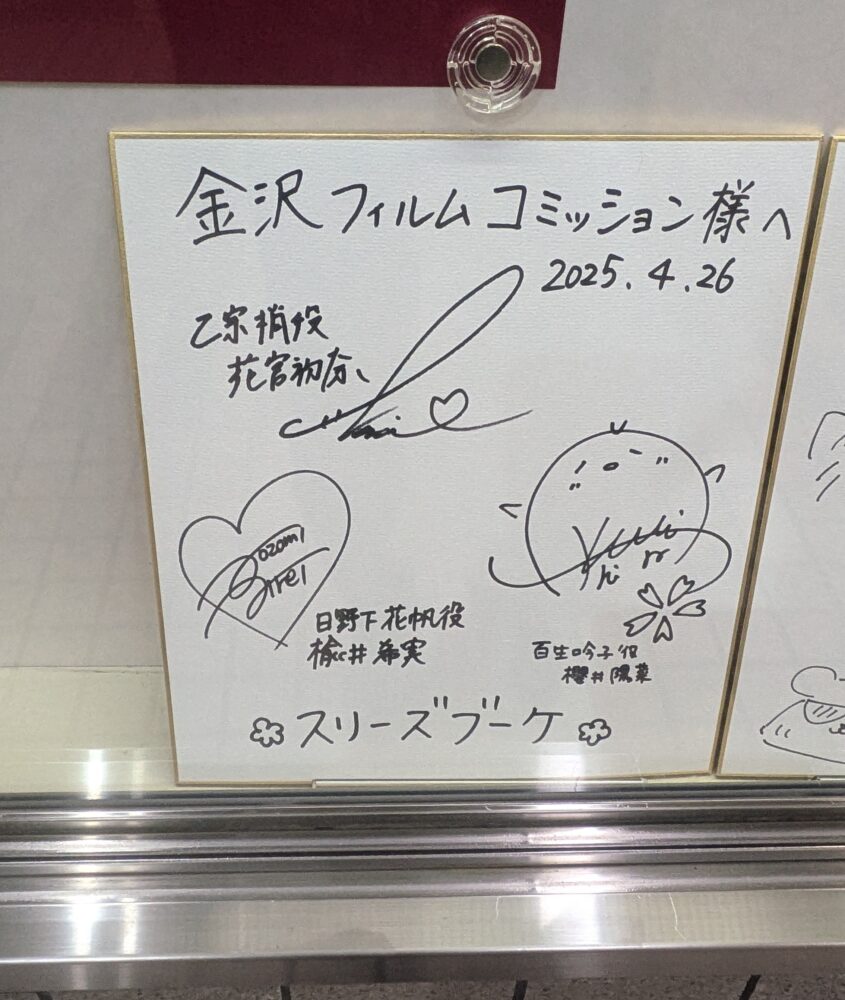 金沢フィルムコミッション様へ
2025.4.26
乙宗梢役
花宮初奈
Nozomi
Nirei
日野下花帆役
楡井希実
百生吟子役
櫻井陽菜
スリーズブーケ